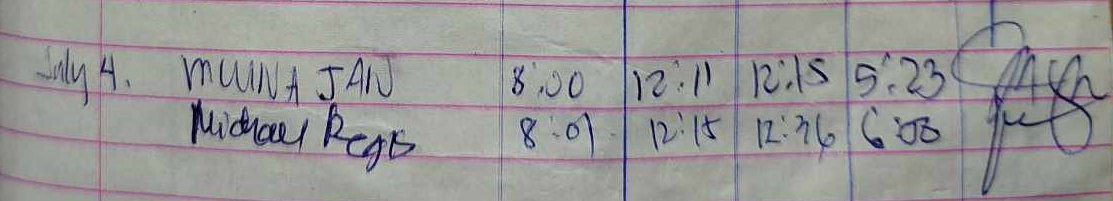 July 4. MUNA JAN 8:00 12:11 12:15 5:23
Michael Regis 8:01 12:15 12:36 6:03